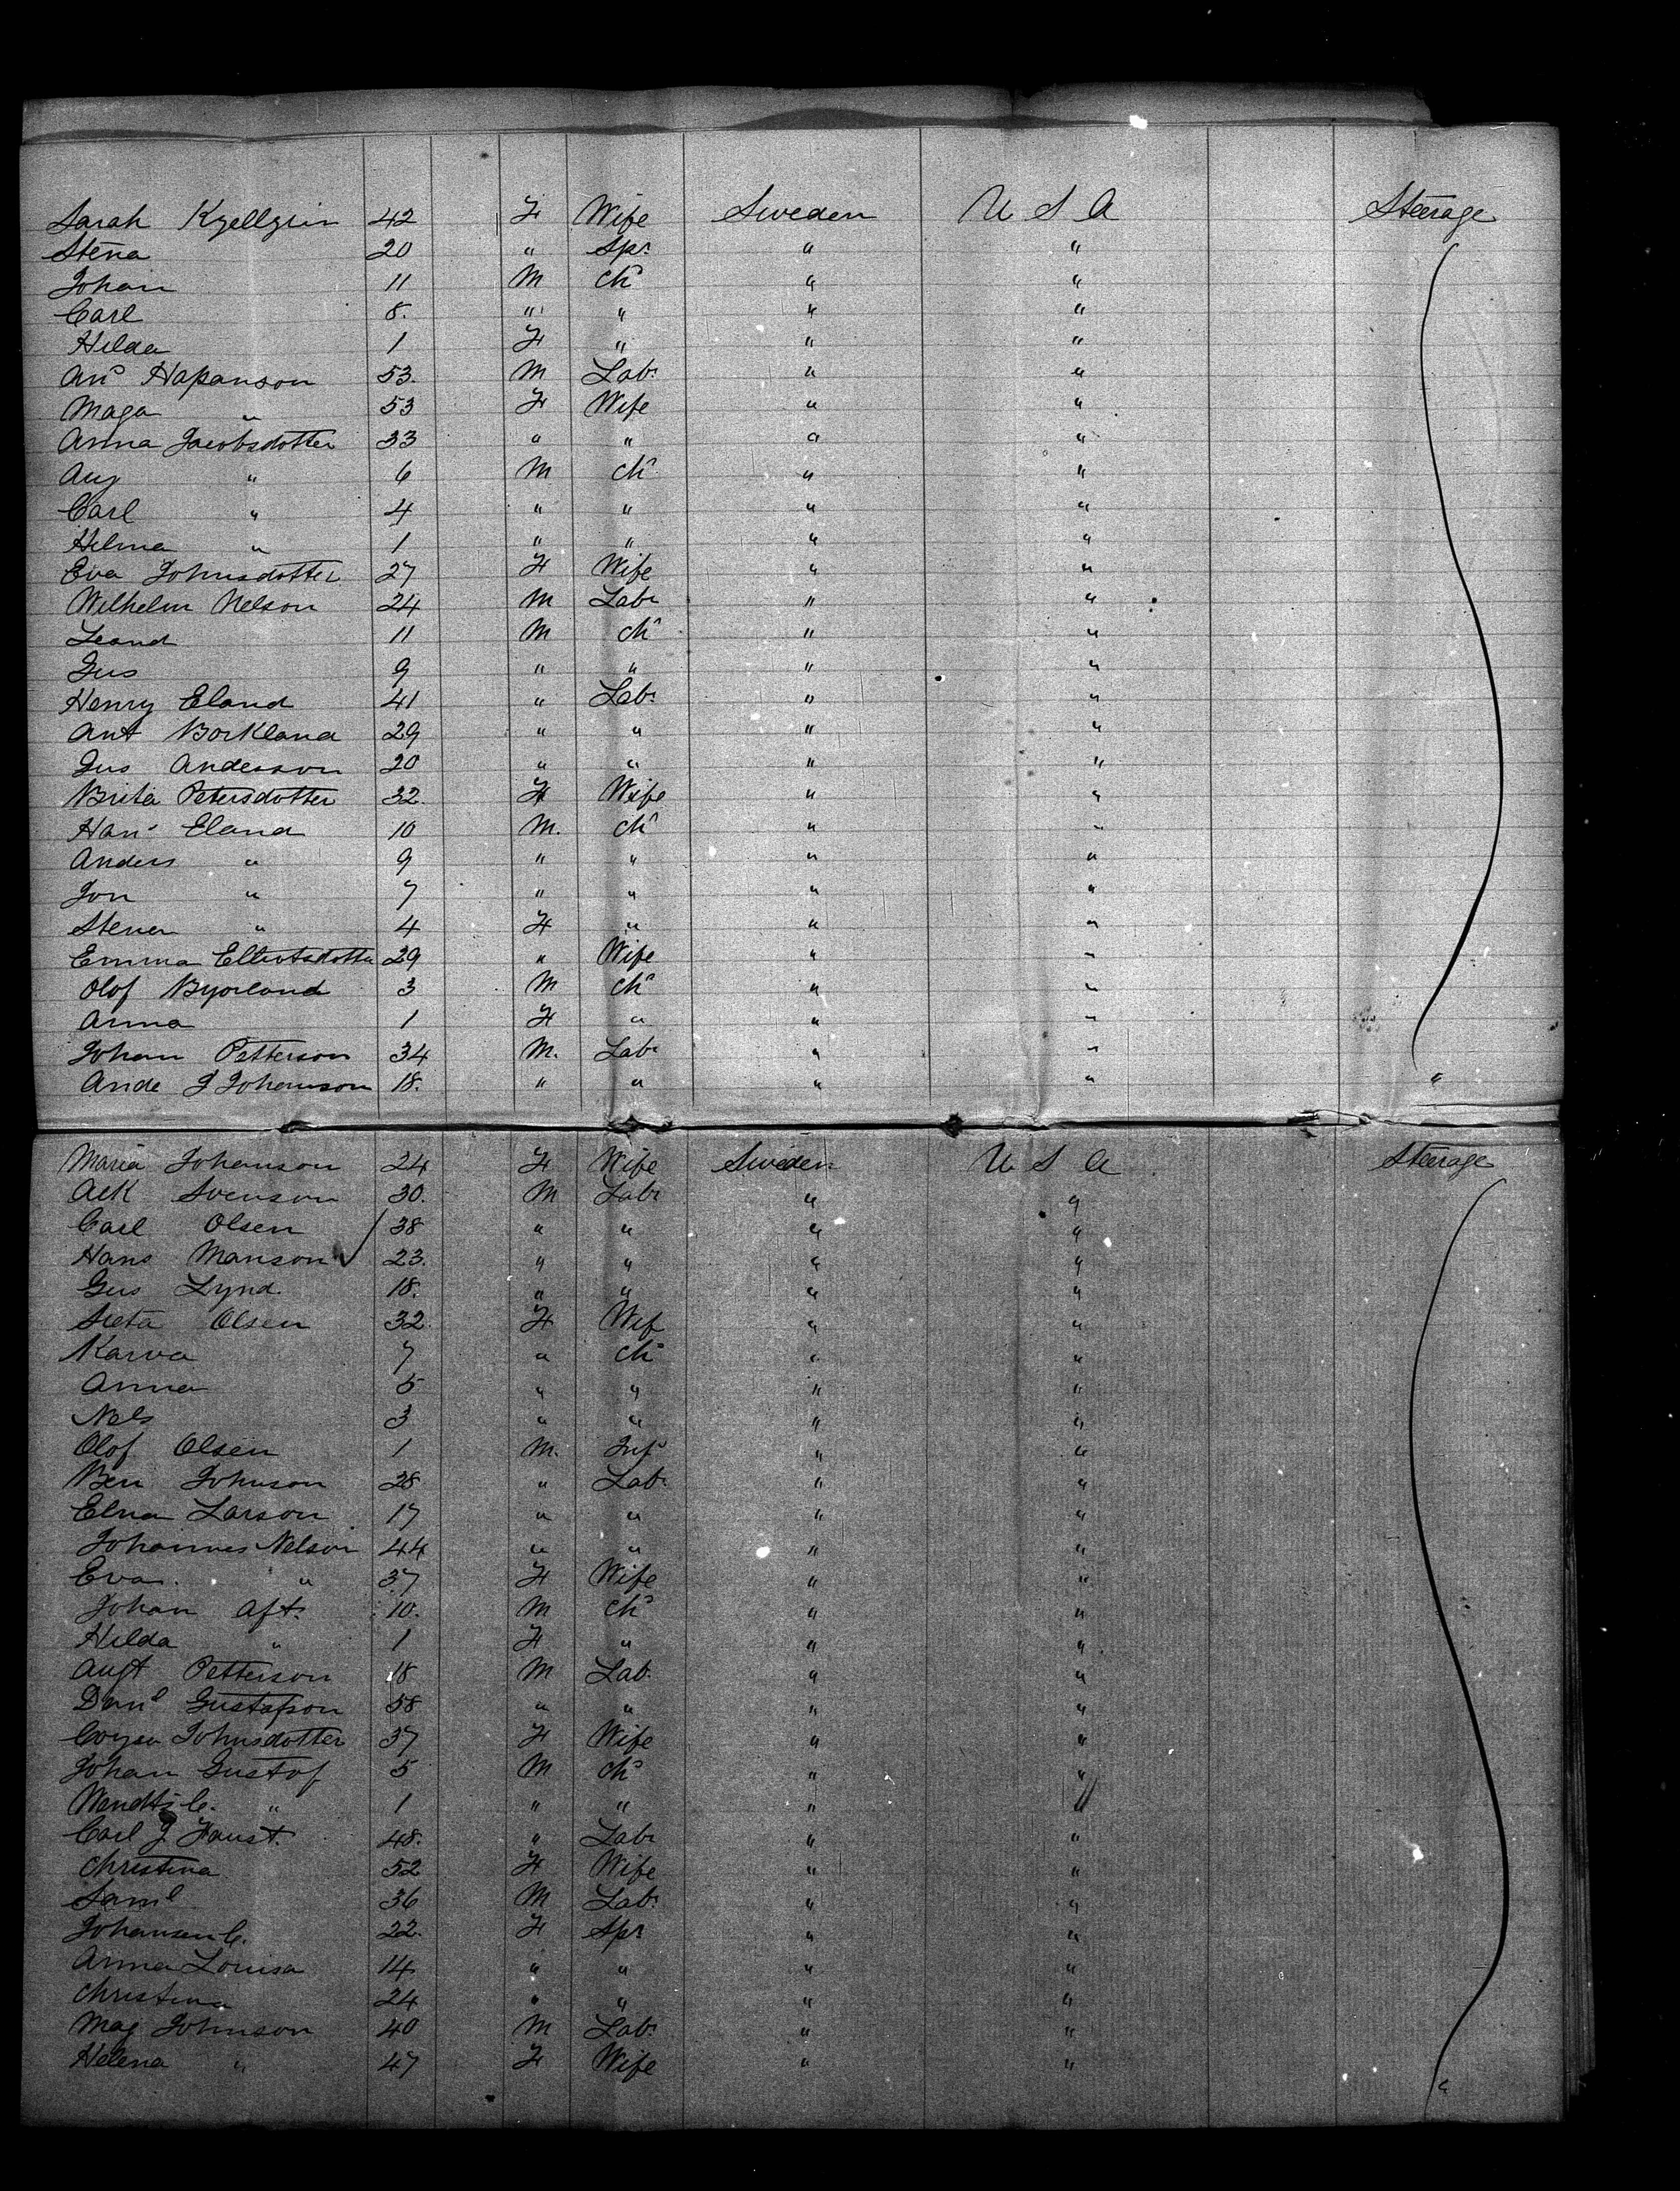 Sarah Kjellgrin 42 F Wife Sweden U S A Steerage
Stena 20 " Spr " "
Johan 11 M Chd " "
Carl 8. " " " "
Hilda 1 F " " "
And Hapanson 53. M Labr " "
Maga " 53 F Wife " "
Anna Jacobsdotter 33 " " " "
Aug " 6 M Chd " "
Carl " 4 " " " "
Helma " 1 " " " "
Eva Johnsdotter 27 F Wife " "
Wilhelm Nelson 24 M Labr " "
Leand 11 M Chd " "
Gus 9 " " " "
Henry Eland 41 " Labr " "
Ant Borkland 29 " " " "
Gus Andersson 20 " " " "
Brita Petersdotter 32. F Wife " "
Han Eland 10 M. Chd " "
Anders " 9 " " " "
Jon " 7 " " " "
Stena " 4 F " " "
Emma 29 " Wife " "
Olof Byorland 3 M Chd " "
Anna 1 F " " "
Johan Petterson 34 M. Labr " "
Ande J Johanson 18. " " " " "
Maria Johanson 24 F Wife Sweden U S A Steerage
Aek Svenson 30. M Labr " "
Carl Olsen 38 " " " "
Hans Manson ✓ 23. " " " "
Gus Lynd 18. " " " "
Olsen 32. F Wif " "
Karva 7 " Chd " "
Anna 5 " " " "
Nels 3 " " " "
Olof Olsen 1 M. Inft " "
Ben Johnson 28 " Labr " "
Elna Larson 17 " " " "
Johannes Nelson 44 " " " "
Eva " 37 F Wife " "
Johan Aft. 10. M Chd " "
Hilda " 1 F " " "
Augt Petterson 18 M Lab. " "
Danl Gustafson 58 " " " "
Johnsdotter 37 F Wife " "
Johan Gustof 5 M Chd " "
C. " 1 " " " "
Carl J Faust. 48. " Labr " "
Christina 52 F Wife " "
Saml 36 M Labr " "
Johansen C. 22. F Spr " "
Anna Louisa 14 " " " "
Christina 24 " " " "
Mag Johnson 40 M Labr " "
Helena " 47 F Wife " " "